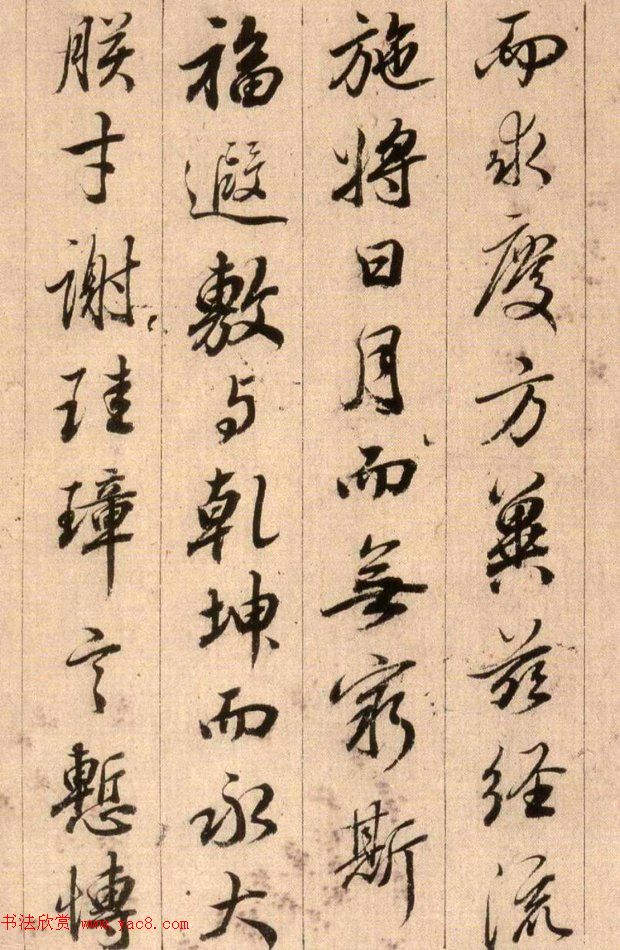 而求度方冀兹经流
施将日月而無窮斯
福遐敷与乾坤而永大
朕才謝珪璋言慙博
书法欣赏 www.yac8.com